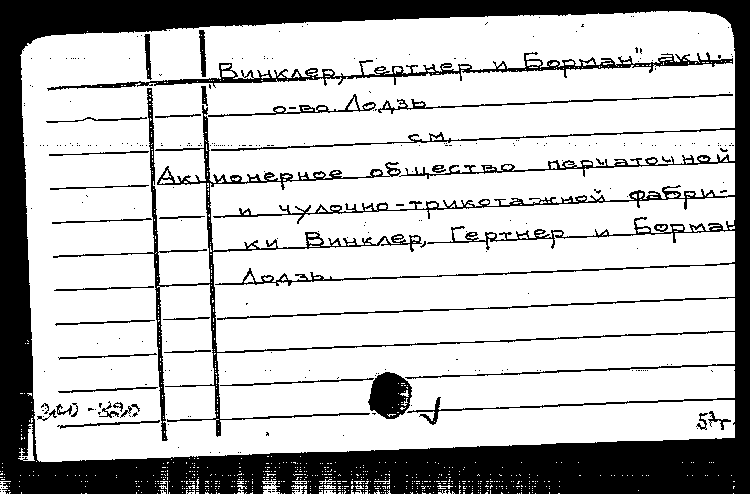 „Винклер, Гертнер и Борман", акц.
о-во. Лодзь
см.
Акционерное общество перчаточной
и чулочно-трикотажной фабри-
ки Винклер, Гертнер и Борман
Лодзь.
57г.